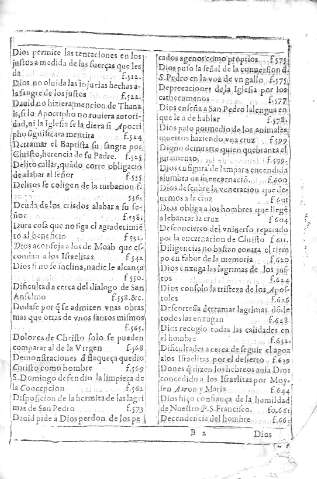 Dios permite las tentaciones en los
justos a medida de las fuerças que les
da. f.512.
Dios no olvida las injurias hechas a
la sangre de los justos
Dauid no hiziera mencion de
si lo Apocripho no tuuiera autori-
dad, ni la Iglesia se la diera si Apocri-
pho significara mentira f.524
Derramar el Baptista su sangre por
Christo, herencia de su Padre. f.525
Delito callar, quádo corre obligació
de alabar el señor f.525.
Delitos se coligen de la turbacion
f.
Deuda de los criados alabar a su se-
ñor.
Dura cosa que no siga el agradecimié
to al beneficio f.551.
Dios aconseja a los de Moab que es-
condan a los Israelitas f.542
Dios si no se inclina, nadie le alcança
f.550.
Dificultad a cerca del dialogo de San
Anselmo f.558.&c.
Dudase por q̃ se admiten vnas obras
mas que otras de vnos santos mismos
f.565.
Dolores de Christo solo se pueden
comparar al de la Virgen f.568.
Demonstraciones d flaqueça quedio
Christo como hombre f.569
S. Domingo defendio la limpieza de
la Concepcion f.562
Disposicion de la hermita de las lagri
mas de San Pedro f.573
Dauid pide a Dios perdon de los pe
cados agenos como propios f.575.
Dios puso la señal de la conuersion d
S. Pedro en la voz de vn gallo f.575.
Deprecaciones de la Iglesia por los
cathecumenos f.577
Dios enseña a San Pedro la lengua en
que le à de hablar f.578.
Dios
muerto haziendo vna cruz f.599
Digno de muerte quien quebranta el
juramento, f.599.
Dios en figura de lampara encendida
f.600
Dios descubre la veneracion que de-
uemos a la cruz f.601
Dios obliga a los hombres que llegẽ
a leuantar la cruz f.604
Desconcierto del vniuerso reparado
por la encarnacion de Christo f.611.
Diligencias no basten contra el tiem-
po en fabor de la memoria f.620
Dios enxuga las lagrimas de los jus-
tos f.624
Dios consolo la tristeza de los Apos-
toles f.626
Descortesia derramar lagrimas dóde
todos las enxugan f.643.
Dios recogio todas las calidades en
el hombre f.632.
Dificultades a cerca de seguir el apos
a los Israelitas por el desierto f.639
Dones q̃ quizen los hebreos auia Dios
concedido a los Israelitas por Moy-
sen Aaron y Maria f.644
Dios hizo confiança de la humildad
de Nuestro P. S. Francisco. f.0.661
Decendencia del hombre f.661
B 2 Dios